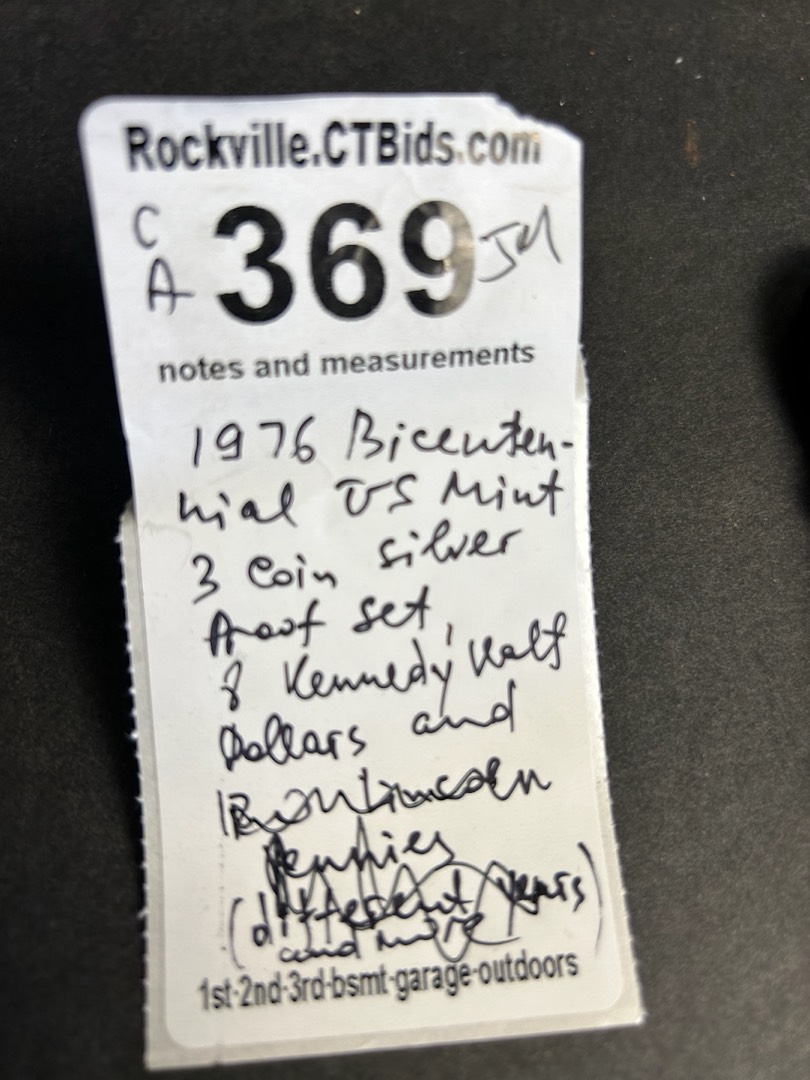 Rockville.CTBids.com
C
A
369
JM
notes and measurements
1976 Bicenten-
nial US Mint
3 Coin silver
Proof set
8 Kennedy Half
Dollars and
Lincoln
pennies
(different years)
and more
1st-2nd-3rd-bsmt-garage-outdoors